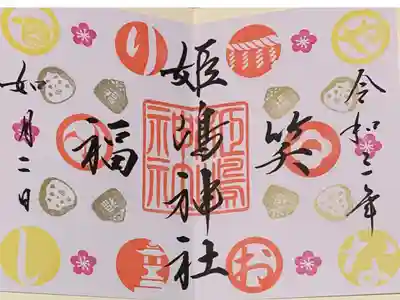 令和三年
笑
姫嶋神社
福
如月二日
姫嶋神社
や
り
な
お
し